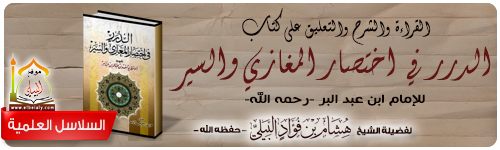 القراءة والشرح والتعليق على كتاب
الدرر في اختصار المغازي والسير
للإمام ابن عبد البر -رحمه الله-
لفضيلة الشيخ هشام بن فؤاد البيلي -حفظه الله-
الدرر
في اختصار المغازي والسير
موقع
www.elbeialy.com
السلاسل العلمية